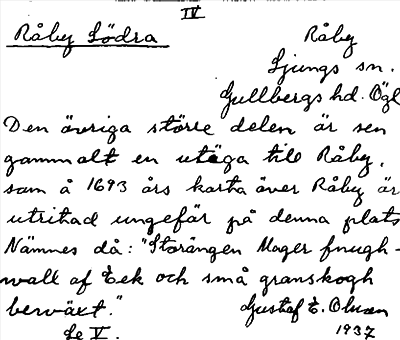 IV
Råby Södra
Råby
Ljungs sn.
Gullbergs hd. Ögl
Den övriga större delen är sen
gammalt en utäga till Råby,
som å 1693 års karta över Råby är
utritad ungefär på denna plats
Nämnes då: "Storängen Mager fnugh-
wall af Eek och små granskogh
berväxt."
Gustaf E. Olsson
Se V.
1937